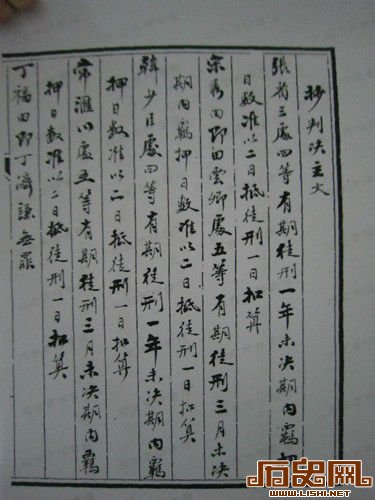 抄判决主文
張省三處四等有期徒刑一年未决期内羈押
日数准以二日抵徒刑一日扣算
宗秀田即田雲卿處五等有期徒刑三月未决
期内羈押日数准以二日抵徒刑一日扣算
韓少臣處四等有期徒刑一年未决期内羈
押日数准以二日抵徒刑一日扣算
常滙川處五等有期徒刑三月未决期内羈
押日数准以二日抵徒刑一日扣算
丁福田即丁濟謙無罪
历史网
WWW.LISHI.NET